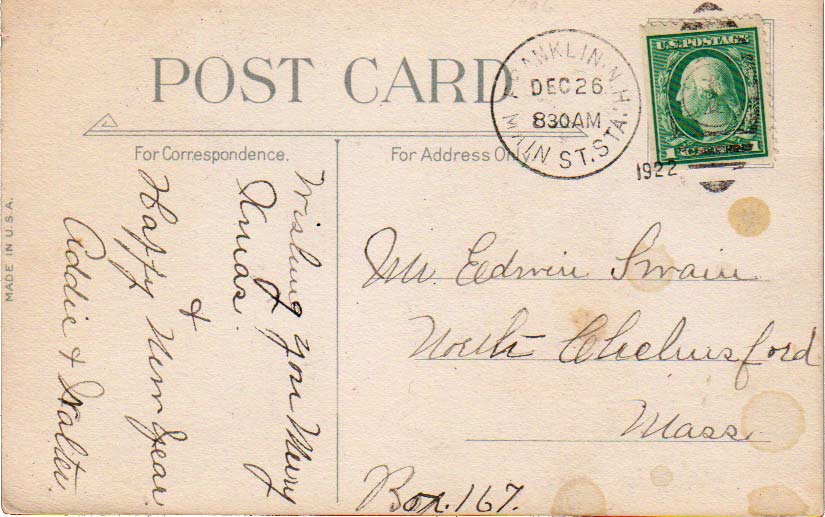 POST CARD
FRANKLIN, N.H.
DEC 26
830AM
MAIN ST. STA.
1922
U.S. POSTAGE
1 CENTS 1
For Correspondence.
For Address Only.
MADE IN U.S.A.
Wishing you Merry
Xmas.
&
Happy New Year.
Addie & Walter.
Mr. Edwin Swain
North Chelmsford
Mass
Box. 167.